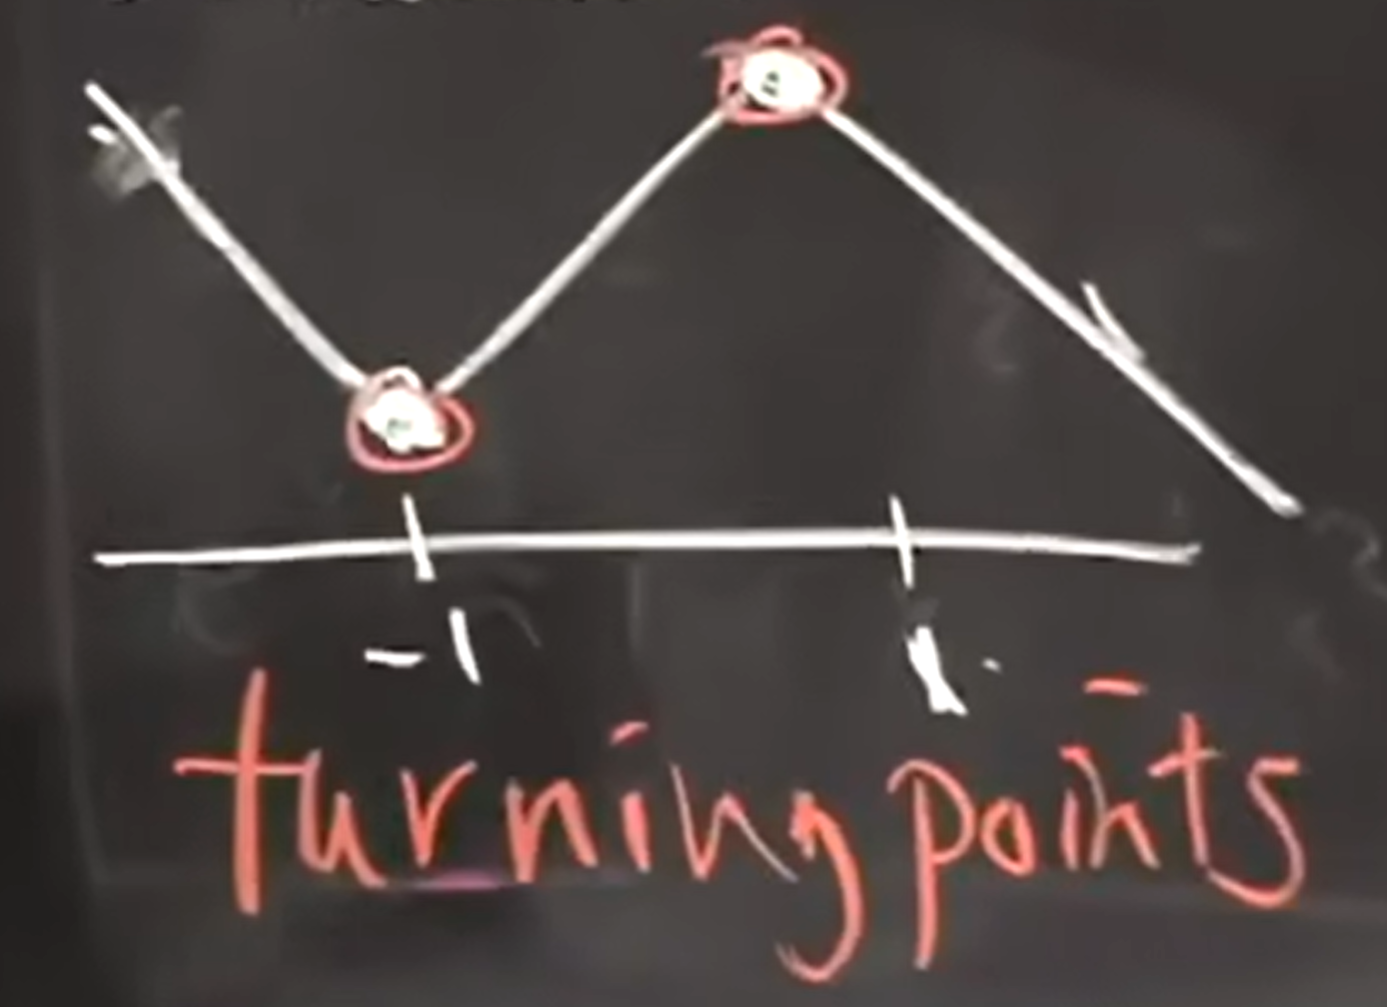 -1 1
turning points